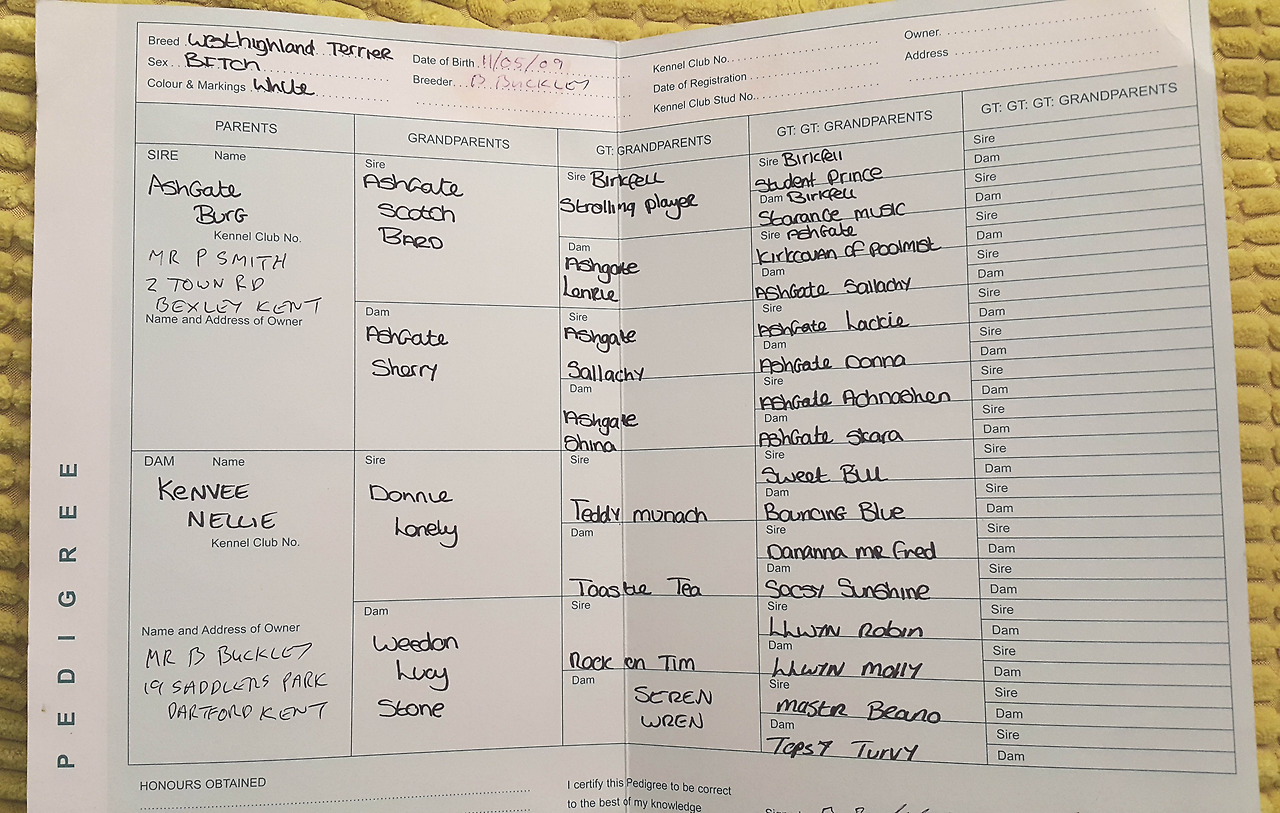 PEDIGREE
Breed Westhighland Terrier
Sex BITCH
Colour & Markings White
Date of Birth 11/05/09
Breeder B Buckley
Kennel Club No.
Date of Registration
Kennel Club Stud No.
Owner
Address
PARENTS
SIRE Name
AshGate
Burg
Kennel Club No.
MR P SMITH
2 TOWN RD
BEXLEY KENT
Name and Address of Owner
DAM Name
KENVEE
NELLIE
Kennel Club No.
Name and Address of Owner
MR B BUCKLEY
19 SADDLERS PARK
DARTFORD KENT
GRANDPARENTS
Sire
AshGate
Scotch
BARD
Dam
AshGate
Sherry
Sire
Donnie
Lonely
Dam
Weedon
Lucy
Stone
GT: GRANDPARENTS
Sire Birkfell
Strolling player
Dam
Ashgate
Lanrie
Sire
Ashgate
Sallachy
Dam
Ashgate
Shina
Sire
Teddy munach
Dam
Toastie Tea
Sire
Rock on Tim
Dam
SEREN
WREN
GT: GT: GRANDPARENTS
Sire Birkfell
Student Prince
Dam Birkfell
Starance music
Sire AshGate
Kirkcowan of Poolmist
Dam
AshGate Sallachy
Sire
AshGate Lackie
Dam
AshGate Donna
Sire
AshGate Achnashen
Dam
AshGate Skara
Sire
Sweet Bill
Dam
Bouncing Blue
Sire
Dananna mr Fred
Dam
Socsy Sunshine
Sire
LLWYN Robin
Dam
LLWYN Molly
Sire
mastr Beano
Dam
Topsy Turvy
GT: GT: GT: GRANDPARENTS
Sire
Dam
Sire
Dam
Sire
Dam
Sire
Dam
Sire
Dam
Sire
Dam
Sire
Dam
Sire
Dam
Sire
Dam
Sire
Dam
Sire
Dam
Sire
Dam
Sire
Dam
Sire
Dam
Sire
Dam
Sire
Dam
HONOURS OBTAINED
I certify this Pedigree to be correct
to the best of my knowledge